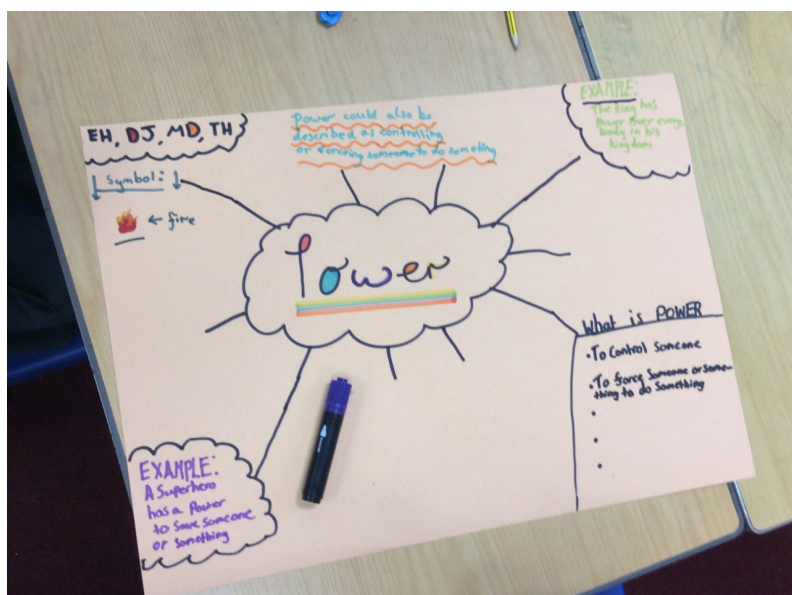 EH, DJ, MD, TH
Symbol:
← fire
Power could also be
described as controlling
or forcing someone to do someting
EXAMPLE:
The king has
Power over every
body in his
kingdom
Power
What is POWER
• To Control Someone
• To force Someone or some-
thing to do Something
•
•
•
EXAMPLE:
A Superhero
has a Power
to save someone
or something